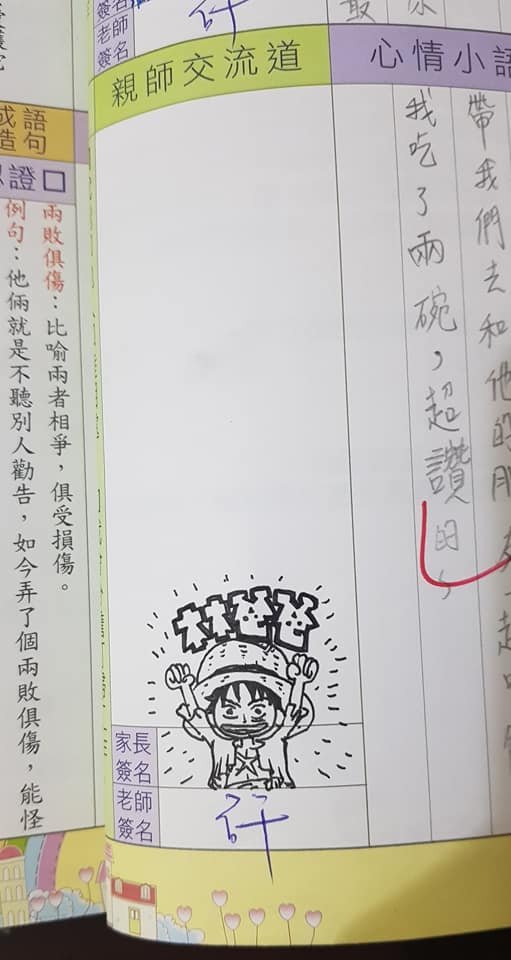 簽名
老師
簽名
許
親師交流道
心情小語
帶我們去和他的朋友一起
我吃了兩碗，超讚的，
林爸爸
家長
簽名
老師
簽名
許
成語
造句
認證口
兩敗俱傷：比喻兩者相爭，俱受損傷。
例句：他倆就是不聽別人勸告，如今弄了個兩敗俱傷，能怪